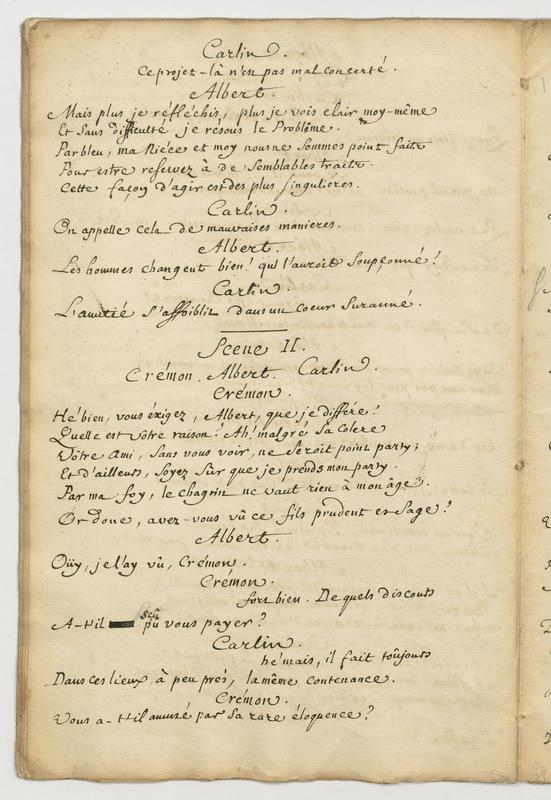 Carlin.
Ce projet-là n'est pas mal concerté.
Albert.
Mais plus je réfléchis, plus je vois clair moy-même
Et sans difficulté je resous le Problême.
Parbleu, ma Niéce et moy nous ne sommes point faits
Pour estre reservez à de semblables traits.
Cette façon d'agir est des plus singuliéres.
Carlin.
On appelle cela de mauvaises manieres.
Albert.
Les hommes changent bien! qui l'auroit soupçonné!
Carlin.
L'amitié s'affoiblit dans un coeur suranné.
Scene II.
Crémon. Albert. Carlin.
Crémon.
Hé bien, vous éxigez, Albert, que je différe!
Quelle est vôtre raison? Ah! malgré sa colere
Vôtre ami, sans vous voir, ne seroit point party;
Et d'ailleurs, soyez sûr que je prends mon party.
Par ma foy, le chagrin ne vaut rien à mon âge.
Or donc, avez-vous vû ce fils prudent et sage?
Albert.
Oüy, je l'ay vû, Crémon.
Crémon.
fort bien. De quels discours
A-t-il sçû pû vous payer?
Carlin.
hé mais, il fait toûjours
Dans ces lieux, à peu prés, la même contenance.
Crémon.
Vous a-t-il amusé par sa rare éloquence?